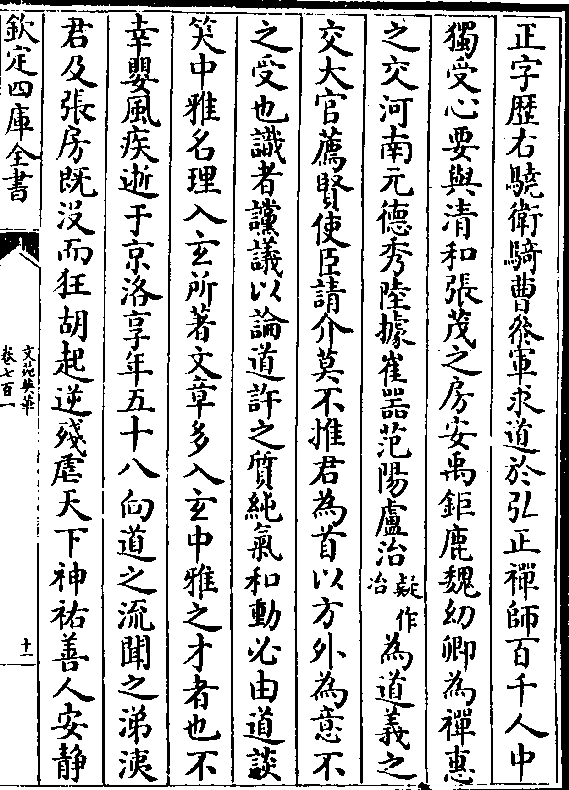 正字歴右驍衛騎曹叅軍求道於弘正禪師百千人中
獨受心要與清和張茂之房安禹鉅鹿魏幼卿為禪惠
之交河南元德秀陸據崔器范陽盧治疑作冶為道義之
交大官薦賢使臣請介莫不推君為首以方外為意不
之受也識者讜議以論道許之質純氣和動必由道談
笑中雅名理入玄所著文章多入玄中雅之才者也不
幸嬰風疾逝于京洛享年五十八向道之流聞之涕洟
君及張房既没而狂胡起逆殘虐天下神祐善人安静
欽定四庫全書
文苑英華
卷七百一
十一